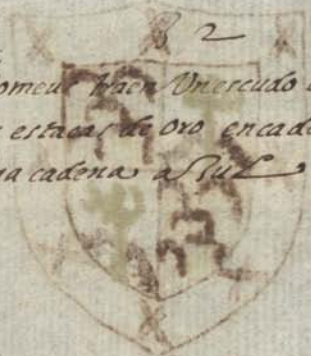 2
omeus traen Un escudo
estacas de oro encade
a cadena asul